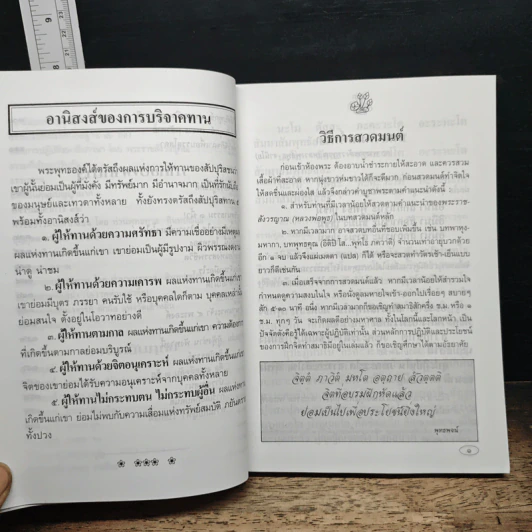 อานิสงส์ของการบริจาคทาน
พระพุทธองค์ได้ตรัสถึงผลแห่งการให้ทานของสัปปุริสชน
เขาผู้นั้นย่อมเป็นผู้ที่มั่งคั่ง มีทรัพย์มาก มีอำนาจมาก เป็นที่รัก
ของมนุษย์และเทวดาทั้งหลาย ทั้งยังทรงตรัสถึงสัปปุริสทาน
พร้อมทั้งอานิสงส์ว่า
๑. ผู้ให้ทานด้วยความศรัทธา มีความเชื่ออย่างมีเหตุ
ผลแห่งทานเกิดขึ้นแก่เขา เขาย่อมเป็นผู้มีรูปงาม ผิวพรรณ
น่าดู น่าชม
๒. ผู้ให้ทานด้วยความเคารพ ผลแห่งทานเกิดขึ้นแก่
เขาย่อมมีบุตร ภรรยา คนรับใช้ หรือบุคคลใดก็ตาม บุคคลเหล่านั้
ย่อมสนใจ ตั้งอยู่ในโอวาทอย่างดี
๓. ผู้ให้ทานตามกาล ผลแห่งทานเกิดขึ้นแก่เขา ความต้อง
ที่เกิดขึ้นตามกาลย่อมบริบูรณ์
๔. ผู้ให้ทานด้วยจิตอนุเคราะห์ ผลแห่งทานเกิดขึ้น
จิตของเขาย่อมได้รับความอนุเคราะห์จากบุคคลทั้งหลาย
๕. ผู้ให้ทานไม่กระทบตน ไม่กระทบผู้อื่น ผลแห่ง
เกิดขึ้นแก่เขา ย่อมไม่พบกับความเสื่อมแห่งทรัพย์สมบัติ ภยันต
ทั้งปวง
วิธีการสวดมนต์
ก่อนเข้าห้องพระ ต้องอาบน้ำชำระกายให้สะอาด และควรสวม
เสื้อผ้าที่สะอาด หากนุ่งขาวห่มขาวได้ก็จะดีมาก ก่อนสวดมนต์ทำจิตใจ
ให้สดชื่นและผ่องใส แล้วจึงกล่าวคำบูชาพระตามคำแนะนำดังนี้
๑. สำหรับท่านที่มีเวลาน้อยให้สวดตามคำแนะนำของพระราช-
สังวรญาณ (หลวงพ่อพุธ) ในบทสวดมนต์หลัก
๒. หากมีเวลามาก อาจสวดบทอื่นที่ชอบเพิ่มขึ้น เช่น บทพาหุง-
มหากา, บทพุทธคุณ (อิติปิ โส...พุทโธ ภควาติ) จำนวนเท่าอายุบวกด้วย
อีก ๑ จบ แล้วจึงแผ่เมตตา (แปล) ก็ได้ หรือจะสวดทำวัตรเช้า-เย็นแบบ
ยาวก็ดีเช่นกัน
๓. เมื่อเสร็จจากการสวดมนต์แล้ว หากมีเวลาน้อยให้สำรวมใจ
กำหนดดูความสงบในใจ หรือนั่งดูลมหายใจเข้า-ออกไปเรื่อยๆ สบายๆ
สัก ๕-๑๐ นาที อนึ่ง หากมีเวลามากก็ขอเชิญทำสมาธิสักครึ่ง ช.ม. หรือ ๑
ช.ม. ทุกๆ วัน จะเกิดผลดีอย่างมหาศาล ทั้งในโลกนี้และโลกหน้า เป็น
ปัจจัตตังคือรู้ได้เฉพาะผู้ปฏิบัติเท่านั้น ส่วนหลักการปฏิบัติและประโยชน์
ของการฝึกจิตทำสมาธิมีอยู่ในเล่มแล้ว ก็ขอเชิญศึกษาได้ตามอัธยาศัย
จิตตํ ภาวิตํ มหโต อตฺถาย สํวตฺตติ
จิตที่อบรมฝึกหัดแล้ว
ย่อมเป็นไปเพื่อประโยชน์ยิ่งใหญ่
พุทธพจน์
9
8